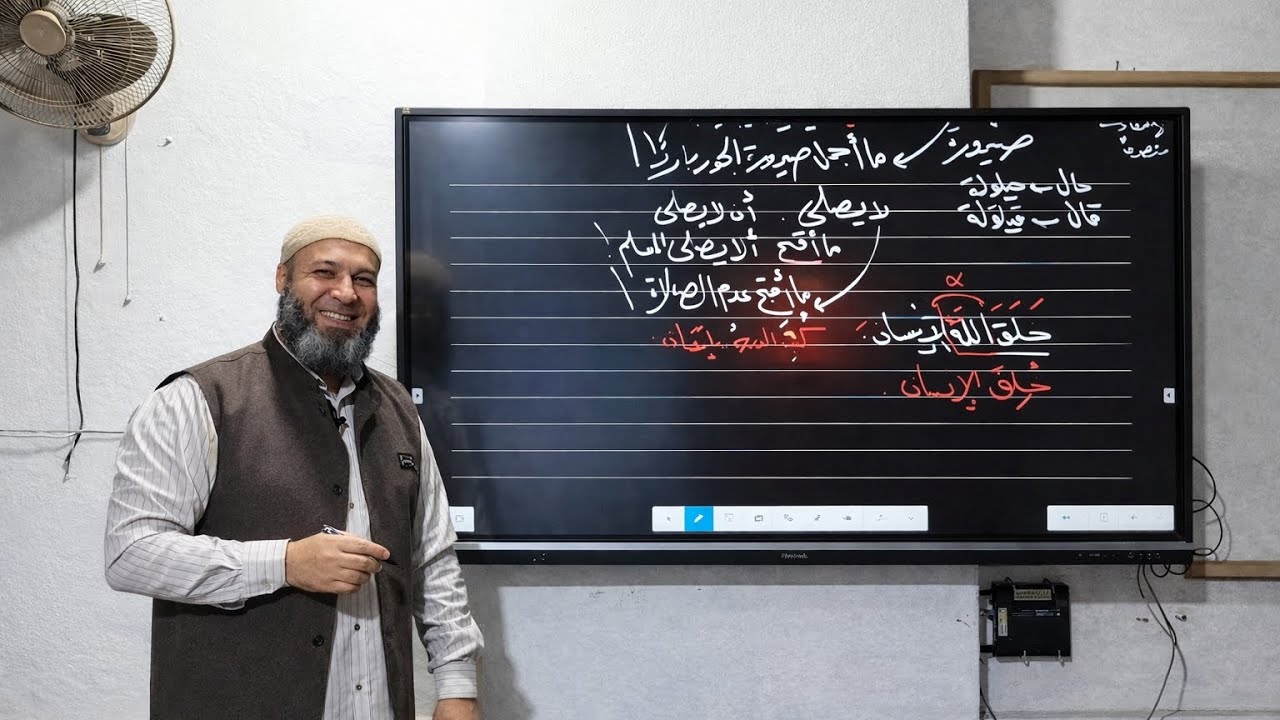 صيرورة ما أجمل صيرورة الجو باردًا!
حال ← حيلولة
قال ← قيلولة
لا يصلي . أن لا يصلي
ما أقبح ألا يصلي المسلم!
ما أقبح عدم الصلاة!
α
خَلَقَ اللهُ الإنسان.
كُتِبَ الدرسُ بإتقان.
خُلِقَ الإنسان.